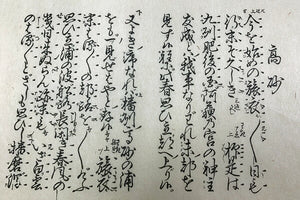 高砂
今を始めの旅衣〳〵日も
行末ぞ久しき 抑是は
九州肥後の国阿蘇の宮の神主
友成とは我事なり我未都を
見ず候程に此春思ひ立都へ上り候
又よき序なれば播州高砂の浦
をも一見せばやと存候 旅衣
末はる〴〵の都路を〳〵けふ
思ひ立浦の波船路長閑き春風の
幾日来ぬらん跡末もいさ白雲
のはる〴〵とさしも思ひし播磨潟